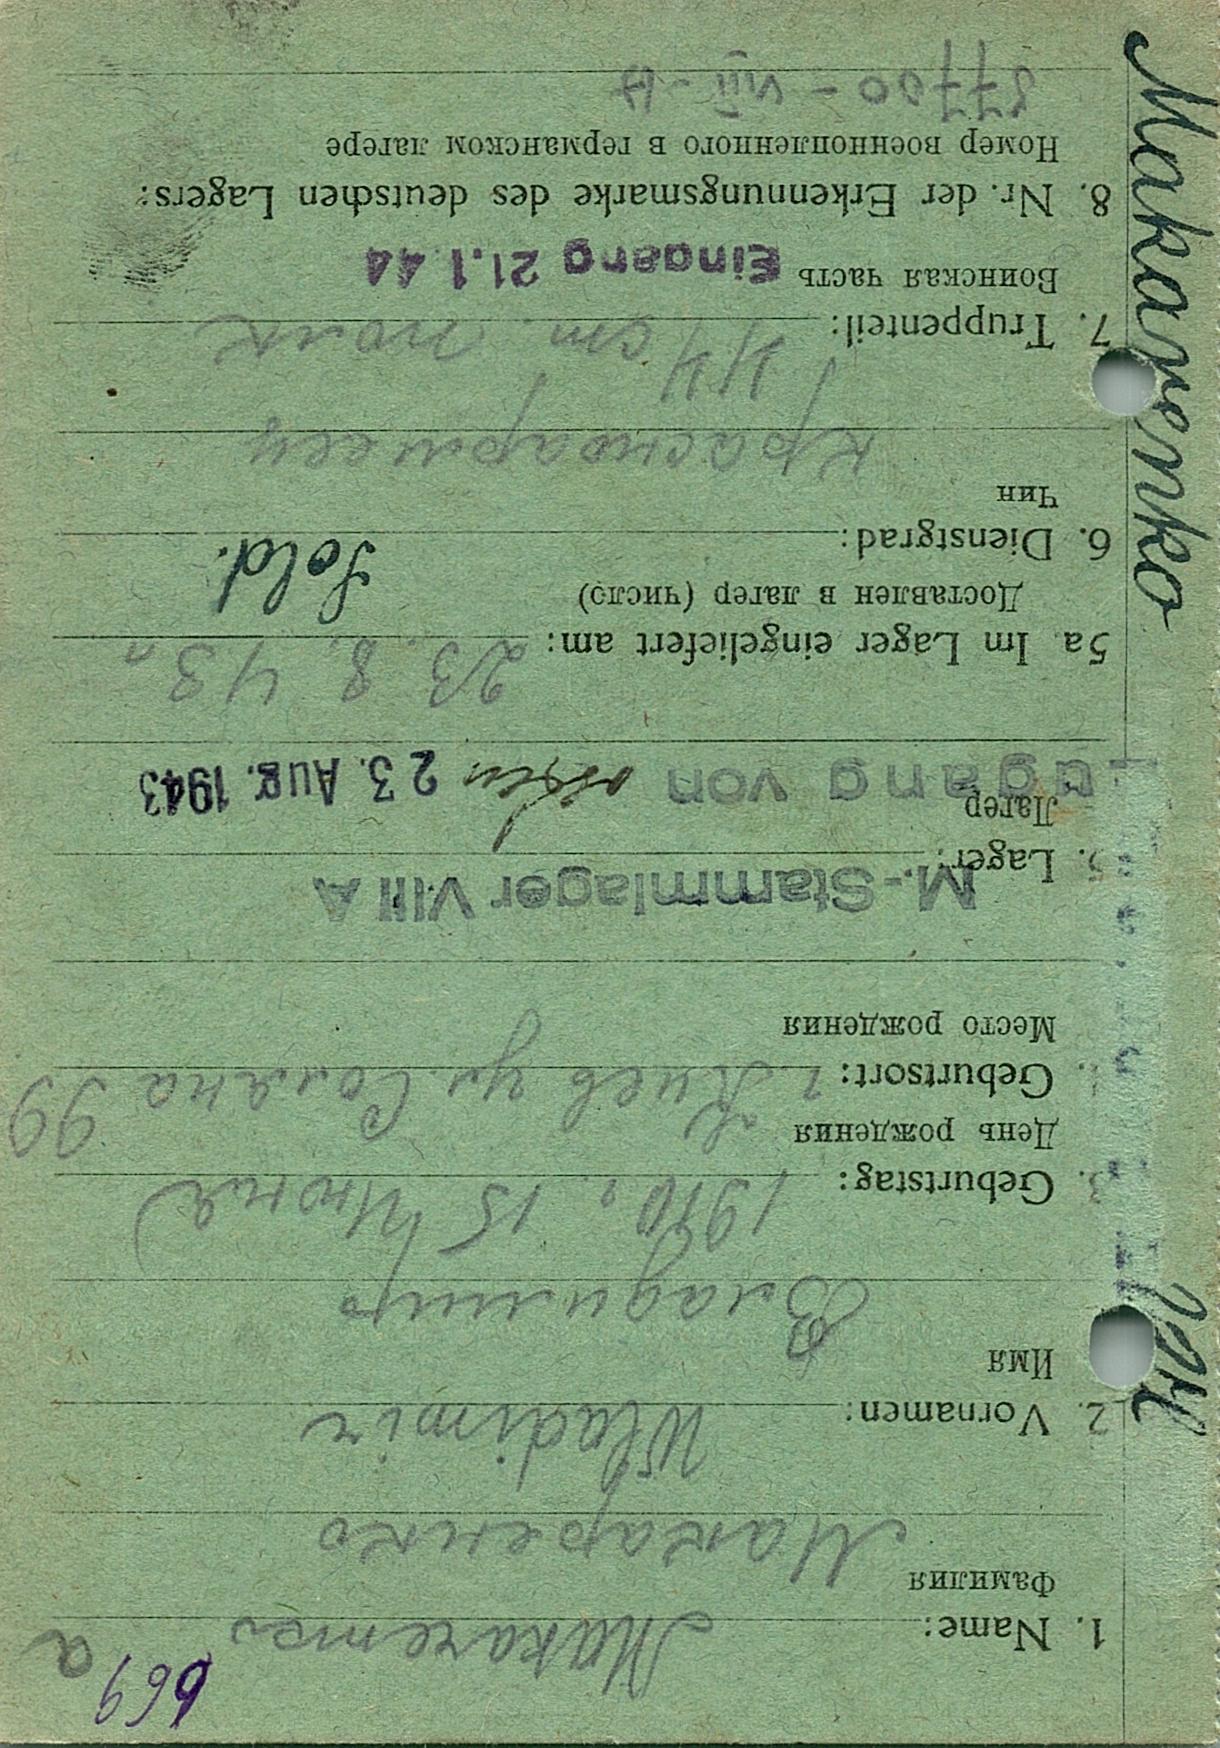 669
a
1. Name: Makarenko
Фамилия
Макаренко
2. Vornamen: Wladimir
Имя
Владимир
3. Geburtstag: 1910 г. 15 Июня
День рождения
Geburtsort: г. Киев ул. 99
Место рождения
M.-Stammlager VIII A
5. Lager:
Лагер
Zugang von 23. Aug. 1943
5a Im Lager eingeliefert am: 23. 8. 43 г.
Доставлен в лагер (число)
6. Dienstgrad: Sold.
Чин
красноармеец
7. Truppenteil: ст. полк
Воинская часть Eingang 21.1.44
8. Nr. der Erkennungsmarke des deutschen Lagers:
Номер военнопленного в германском лагере
37700 - VIII - A
Makarenko